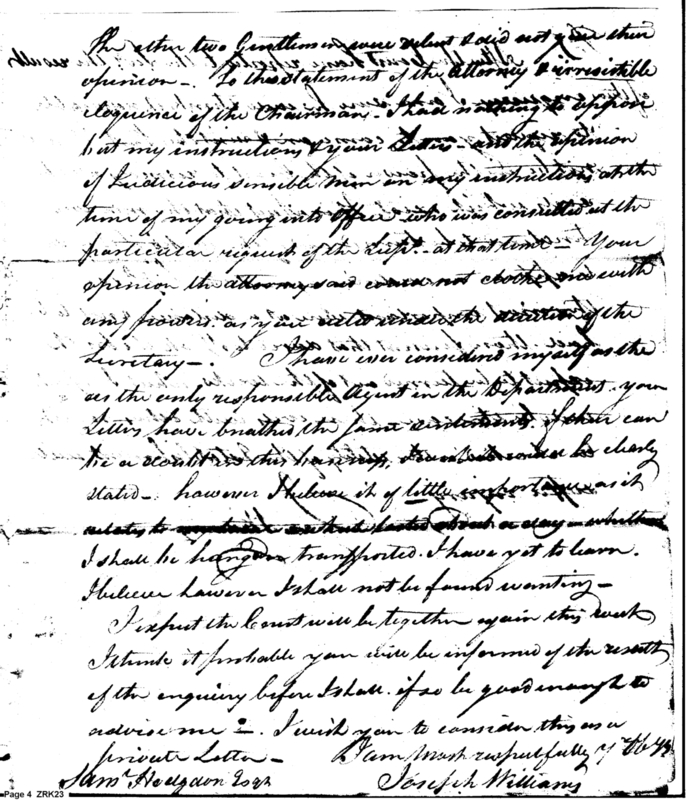 The other two Gentlemen were silent & did not give their
opinion -. To the statement of the Attorney & irresistible
eloquence of the Chairman - I had nothing to oppose
but my instructions & your Letter - and the opinion
of Judicious sensible men on my instructions at the
time of my going into office who was consulted at the
particular request of the Supt. - at that time - Your
opinion the attorney said could not clothe me with
any powers. as you acted under the direction of the
Secretary -. I have ever considered myself as the
as the only responsible Agent in the Department. your
Letters have breathed the same sentiments, if there can
be a doubt in this business, it should be clearly
stated -. however I believe it of little importance as it
relates to my trial which lasted about a day - whether
I shall be hang or transported. I have yet to learn.
I believe however I shall not be found wanting -
I expect the Court will be together again this week
I think it probable you will be informed of the result
of the enquiry before I shall. if so be good enough to
advise me -. I wish you to consider this as a
private Letter - I am most respectfully yr Ob
Saml Hodgdon Esqr Joseph Williams
Page 4 ZRK23